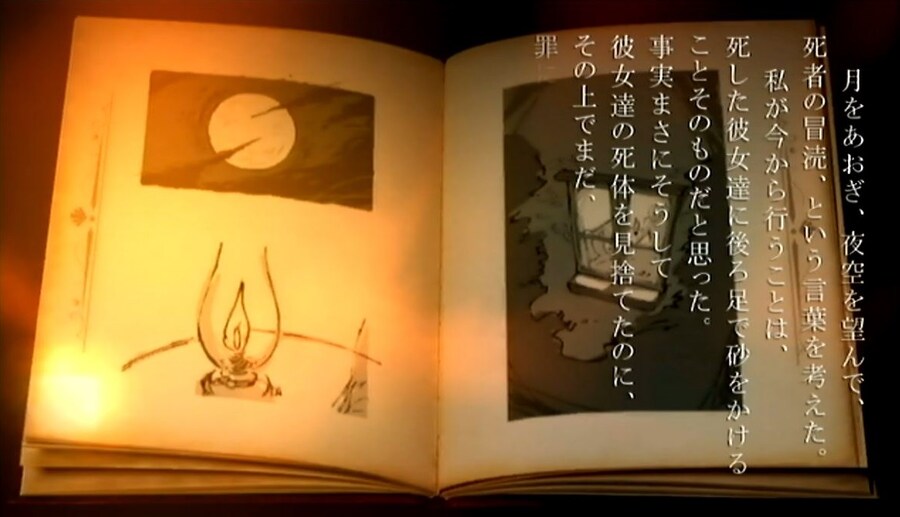 月をあおぎ、夜空を望んで、
死者の冒涜、という言葉を考えた。
私が今から行うことは、
死した彼女達に後ろ足で砂をかける
ことそのものだと思った。
事実まさにそうして
彼女達の死体を見捨てたのに、
その上でまだ、
罪